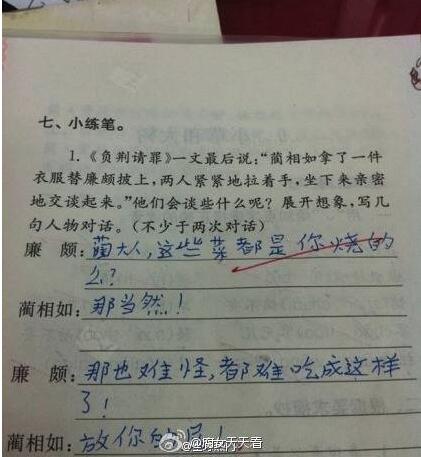 七、小练笔。
1.《负荆请罪》一文最后说:“蔺相如拿了一件
衣服替廉颇披上,两人紧紧地拉着手,坐下来亲密
地交谈起来。”他们会谈些什么呢?展开想象,写几
句人物对话。(不少于两次对话)
廉 颇:蔺大人,这些菜都是你烧的
么?
蔺相如:那当然!
廉 颇:那也难怪,都难吃成这样
了!
蔺相如:放你的屁!
@腐女天天看